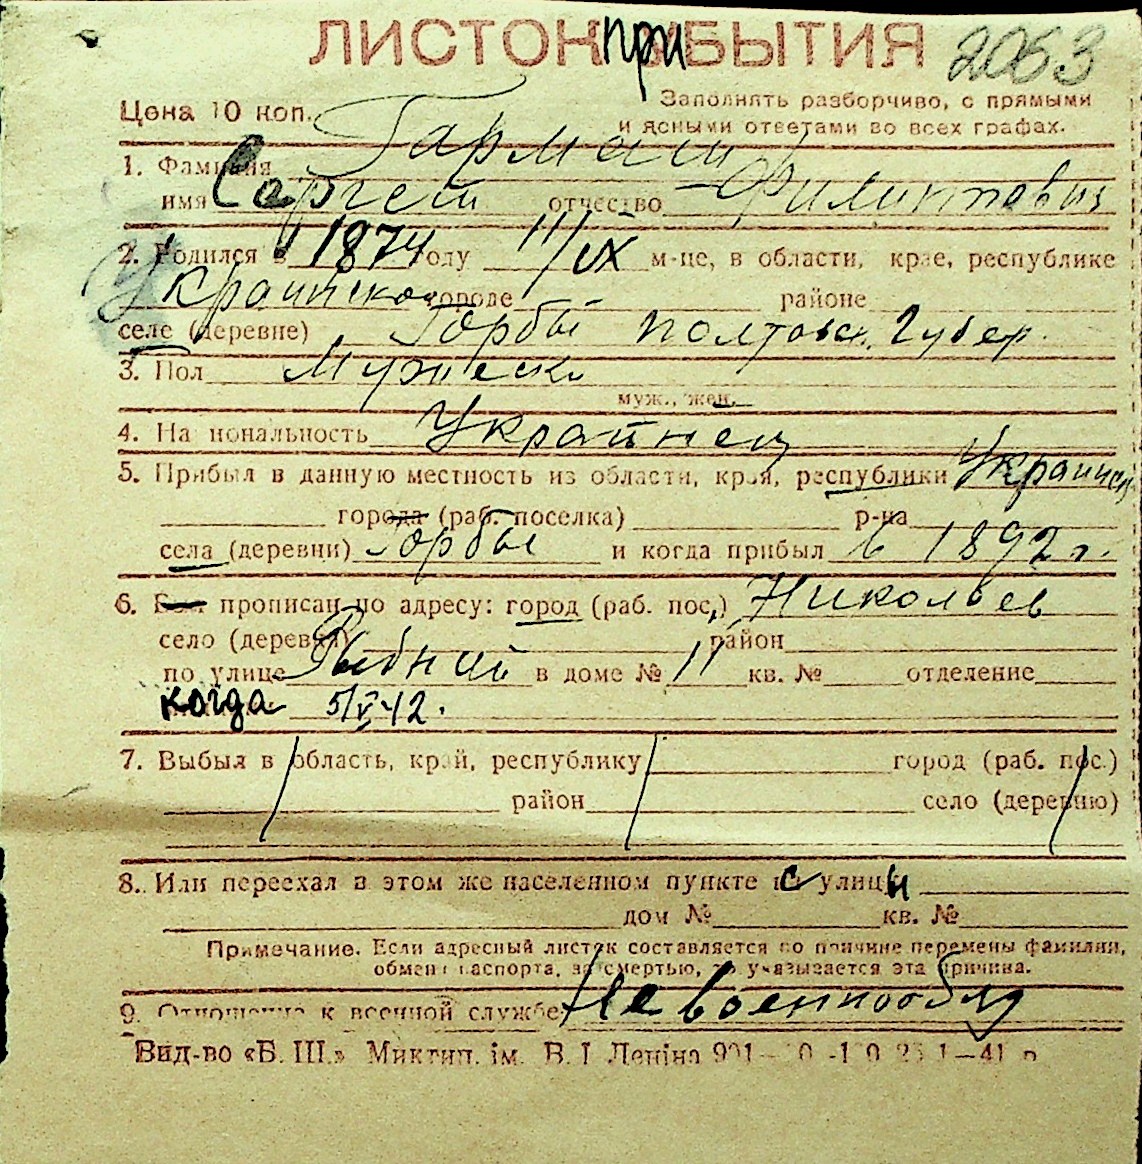 ЛИСТОК приБЫТИЯ 2053
Цена 10 коп. Заполнять разборчиво, с прямыми
и ясными ответами во всех графах.
1. Фамилия Гармаш
имя Сергей отчество Филиппович
2. Родился в 1874 году 11/IX м-це, в области, крае, республике
Украинской городе районе
селе (деревне) Горбы Полтавск. Губер.
3. Пол Мужеск
муж., жен.
4. Национальность Украинец
5. Прибыл в данную местность из области, края, республики Украинск
города (раб. поселка) р-на
села (деревни) Горбы и когда прибыл в 1892 г.
6. Был прописан по адресу: город (раб. пос.) Николаев
село (деревня) район
по улице Рыбний в доме № 11 кв. № отделение
когда 5/V 42.
7. Выбыл в область, край, республику город (раб. пос.)
район село (деревню)
8. Или переехал в этом же населенном пункте с улицы
дом № кв. №
Примечание. Если адресный листок составляется по причине перемены фамилии,
обмена паспорта, за смертью, то указывается эта причина.
9. Отношение к военной службе Не военнообяз
Вид-во «Б. Ш.» Миктип. ім. В. І Леніна